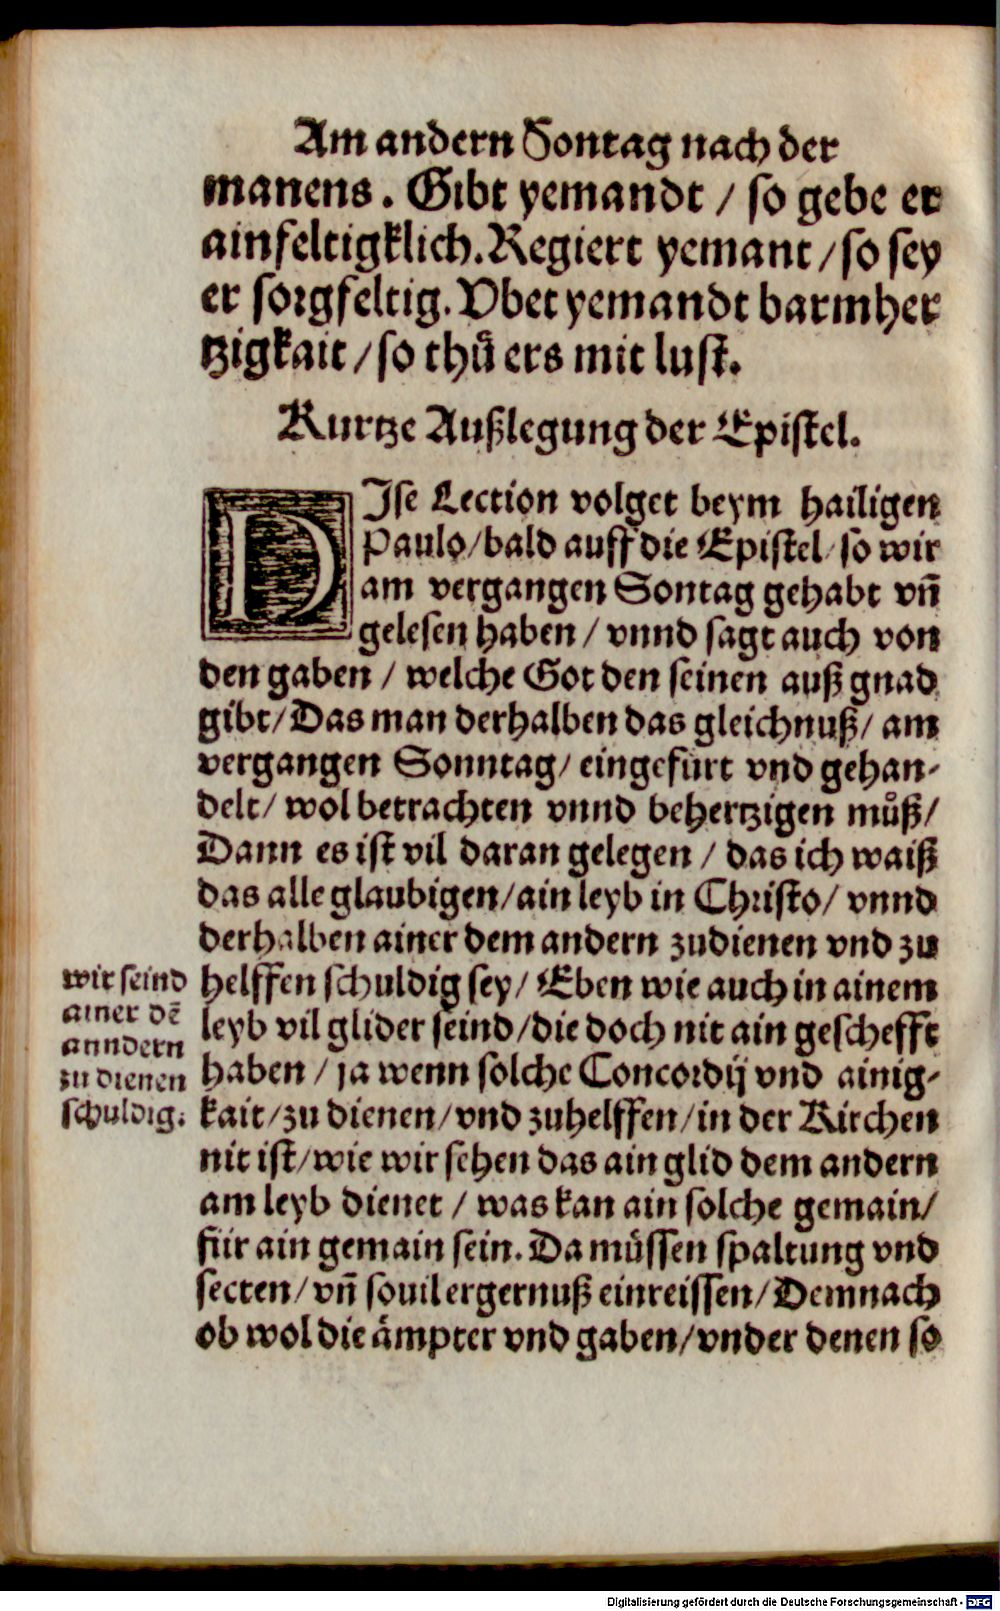 Am andern Sontag nach der
manens. Gibt yemandt / so gebe er
ainfeltigklich. Regiert yemant / so sey
er sorgfeltig. Vbet yemandt barmher
tzigkait / so thuͤ ers mit lust.
Kurtze Außlegung der Epistel.
DIse Lection volget beym hailigen
Paulo / bald auff die Epistel / so wir
am vergangen Sontag gehabt vñ
gelesen haben / vnnd sagt auch von
den gaben / welche Got den seinen auß gnad
gibt / Das man derhalben das gleichnuß / am
vergangen Sonntag / eingefürt vnd gehan-
delt / wol betrachten vnnd behertzigen muͦß /
Dann es ist vil daran gelegen / das ich waiß
das alle glaubigen / ain leyb in Christo / vnnd
derhalben ainer dem andern zudienen vnd zu
helffen schuldig sey / Eben wie auch in ainem
leyb vil glider seind / die doch nit ain geschefft
haben / ja wenn solche Concordij vnd ainig-
kait / zu dienen / vnd zuhelffen / in der Kirchen
nit ist / wie wir sehen das ain glid dem andern
am leyb dienet / was kan ain solche gemain /
für ain gemain sein. Da müssen spaltung vnd
secten / vñ souil ergernuß einreissen / Demnach
ob wol die ämpter vnd gaben / vnder denen so
wir seind
ainer dẽ
anndern
zu dienen
schuldig.
Digitalisierung gefördert durch die Deutsche Forschungsgemeinschaft - DFG